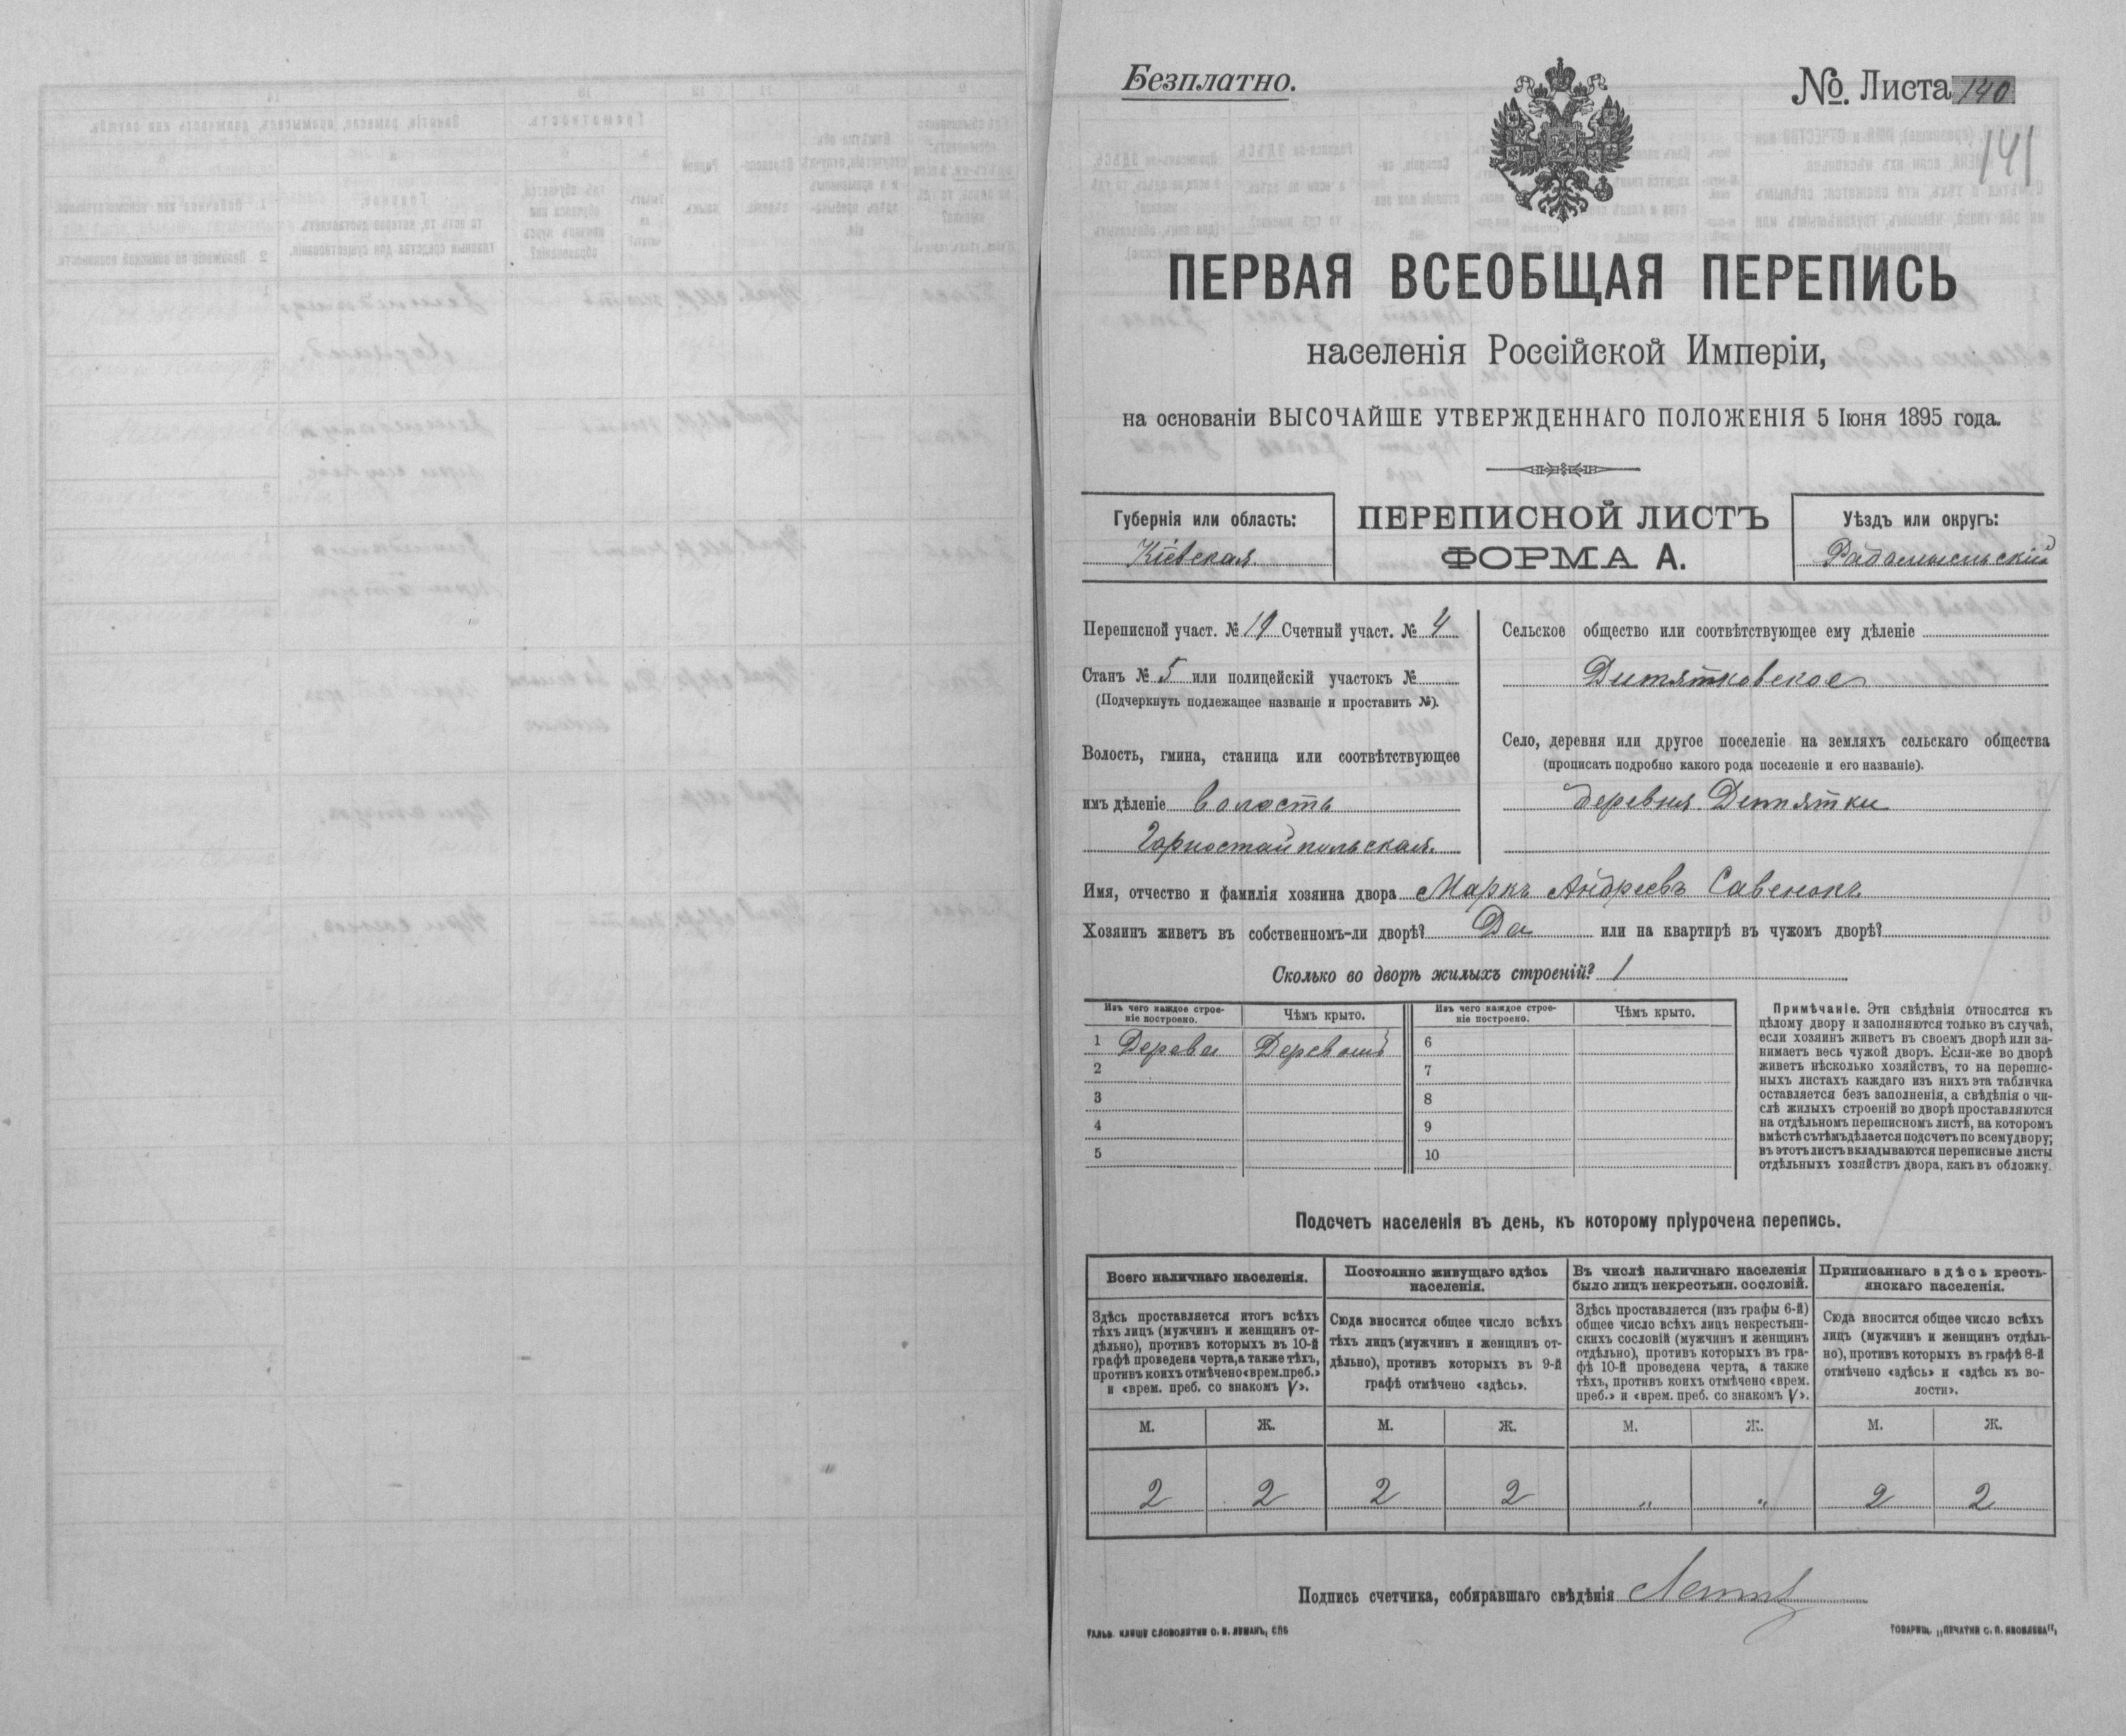 Безплатно.
№. Листа 140
141
ПЕРВАЯ ВСЕОБЩАЯ ПЕРЕПИСЬ
населенія Россійской Имперіи,
на основаніи ВЫСОЧАЙШЕ УТВЕРЖДЕННАГО ПОЛОЖЕНІЯ 5 Іюня 1895 года.
Губернія или область:
Кіевская.
ПЕРЕПИСНОЙ ЛИСТЪ
ФОРМА А.
Уѣздъ или округъ:
Радомысльскій
Переписной участ. № 19 Счетный участ. № 4
Станъ № 5 или полицейскій участокъ №
(Подчеркнуть подлежащее названіе и проставить №).
Волость, гмина, станица или соотвѣтствующее
имъ дѣленіе волость
Горностайпольская.
Сельское общество или соотвѣтствующее ему дѣленіе
Дитятковское
Село, деревня или другое поселеніе на земляхъ сельскаго общества
(прописать подробно какого рода поселеніе и его названіе).
деревня Дитятки
Имя, отчество и фамилія хозяина двора Маркъ Андреевъ Савенокъ
Хозяинъ живетъ въ собственномъ-ли дворѣ? Да или на квартирѣ въ чужомъ дворѣ?
Сколько во дворѣ жилыхъ строеній? 1
Изъ чего каждое строе-
ніе построено.
Чѣмъ крыто.
Изъ чего каждое строе-
ніе построено.
Чѣмъ крыто.
1 Дерева Деревомъ 6
2 7
3 8
4 9
5 10
Примѣчаніе. Эти свѣдѣнія относятся къ
цѣлому двору и заполняются только въ случаѣ,
если хозяинъ живетъ въ своемъ дворѣ или за-
нимаетъ весь чужой дворъ. Если-же во дворѣ
живетъ нѣсколько хозяйствъ, то на перепис-
ныхъ листахъ каждаго изъ нихъ эта табличка
оставляется безъ заполненія, а свѣдѣнія о чи-
слѣ жилыхъ строеній во дворѣ проставляются
на отдѣльномъ переписномъ листѣ, на которомъ
вмѣстѣ съ тѣмъ дѣлается подсчетъ по всему двору;
въ этотъ листъ вкладываются переписные листы
отдѣльныхъ хозяйствъ двора, какъ въ обложку.
Подсчетъ населенія въ день, къ которому пріурочена перепись.
Всего наличнаго населенія.
Здѣсь проставляется итогъ всѣхъ
тѣхъ лицъ (мужчинъ и женщинъ от-
дѣльно), противъ которыхъ въ 10-й
графѣ проведена черта, а также тѣхъ,
противъ коихъ отмѣчено «врем. преб.»
и «врем. преб. со знакомъ V».
Постоянно живущаго здѣсь
населенія.
Сюда вносится общее число всѣхъ
тѣхъ лицъ (мужчинъ и женщинъ от-
дѣльно), противъ которыхъ въ 9-й
графѣ отмѣчено «здѣсь».
Въ числѣ наличнаго населенія
было лицъ некрестьян. сословій.
Здѣсь проставляется (изъ графы 6-й)
общее число всѣхъ лицъ некрестьян-
скихъ сословій (мужчинъ и женщинъ
отдѣльно), противъ которыхъ въ гра-
фѣ 10-й проведена черта, а также
тѣхъ, противъ коихъ отмѣчено «врем.
преб.» и «врем. преб. со знакомъ V».
Приписаннаго здѣсь кресть-
янскаго населенія.
Сюда вносится общее число всѣхъ
лицъ (мужчинъ и женщинъ отдѣль-
но), противъ которыхъ въ графѣ 8-й
отмѣчено «здѣсь» и «здѣсь къ во-
лости».
М. Ж. М. Ж. М. Ж. М. Ж.
2 2 2 2 " " 2 2
Подпись счетчика, собиравшаго свѣдѣнія
ГАЛЬВ. КЛИШЕ СЛОВОЛИТНИ О. И. ЛЕМАНЪ, СПБ
ТОВАРИЩ. „ПЕЧАТНЯ С. П. ЯКОВЛЕВА",